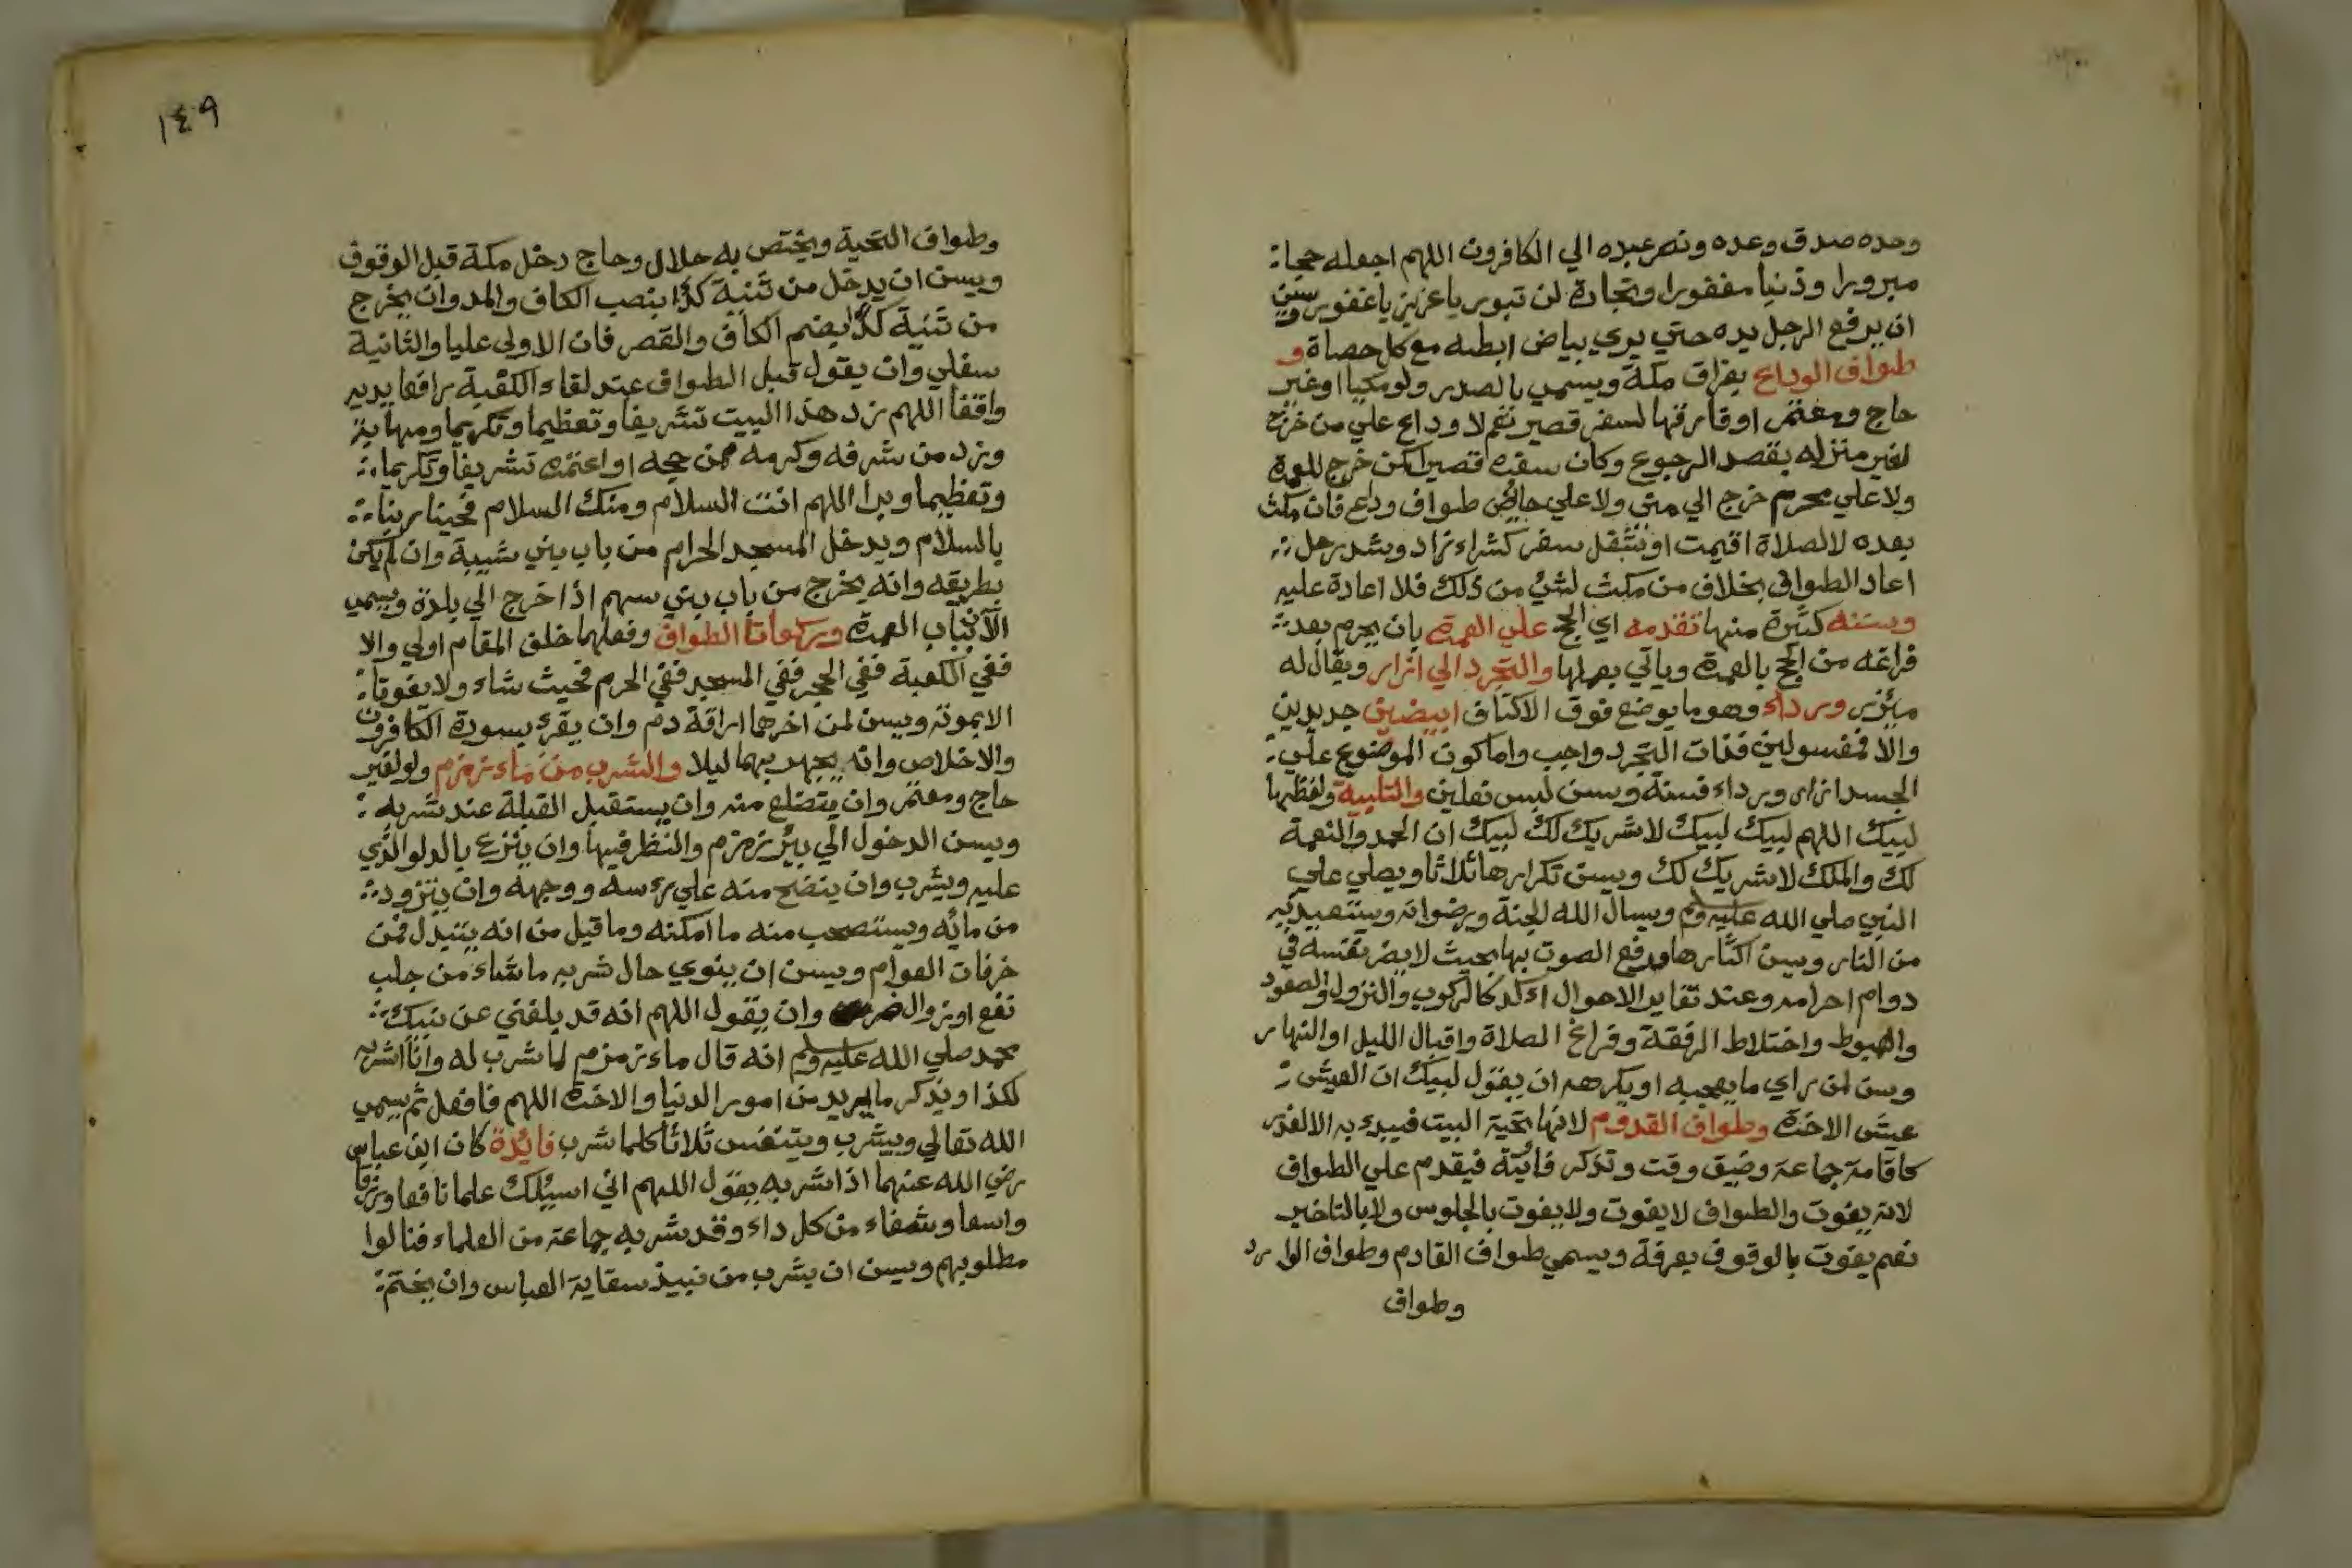 وحده صدق وعده ونصر عبده الي الكافرون اللهم اجعله حجا
مبرورا وذنبا مغفورا وتجارة لن تبور يا عزيز يا غفور وسن
ان يرفع الرجل يده حتي يري بياض ابطه مع كل حصاة و
طواف الوداع بفراق مكة ويسمي بالصدر ولو مكيا او غير
حاج ومعتمر او فارقها لسفر قصير نعم لا وداع علي من خرج
لغير منزله بقصد الرجوع وكان سفره قصيرا كمن خرج للعمرة
ولا علي محرم خرج الي مني ولا علي حائض طواف وداع فان مكث
بعده لا لصلاة اقيمت او شغل سفر كشراء زاد وشد رحل
اعاد الطواف بخلاف من مكث لشئ من ذلك فلا اعادة عليه
وسننه كثيرة منها تقدمه اي الحج علي العمرة بان يحرم بعد
فراغه من الحج بالعمرة وياتي بعملها والتجرد الي ازار ويقال له
مئزر ورداء وهو ما يوضع فوق الاكتاف ابيضين جديدين
والا فمغسولين فذات التجرد واجب واما كون الموضوع علي
الجسد ازار ورداء فسنة وسن لبس نعلين والتلبية ولفظها
لبيك اللهم لبيك لبيك لا شريك لك لبيك ان الحمد والنعمة
لك والملك لا شريك لك ويسن تكرارها ثلاثا ويصلي علي
النبي صلي الله عليه وسلم ويسال الله الجنة ورضوانه ويستعيذ به
من النار وسن اكثارها ورفع الصوت بها بحيث لا يضر نفسه في
دوام احرامه وعند تغاير الاحوال اءكد كالركوب والنزول والصعود
والهبوط واختلاط الرفقة وفراغ الصلاة واقبال الليل او النهار
وسن لمن راي ما يعجبه او يكرهه ان يقول لبيك ان العيش
عيش الاخرة وطواف القدوم لانها تحية البيت فيبدء به الا لعذر
كاقامة جماعة وضيق وقت وتذكر فائتة فيقدم علي الطواف
لانه يفوت والطواف لا يفوت ولا يفوت بالجلوس ولا بالتاخير
نعم يفوت بالوقوف بعرفة ويسمي طواف القادم وطواف الوارد
وطواف
١٤٩
وطواف التحية ويختص به حلال وحاج دخل مكة قبل الوقوف
ويسن ان يدخل من ثنية كدا بنصب الكاف والمد وان يخرج
من ثنية كدا بضم الكاف والقصر فان الاولي عليا والثانية
سفلي وان يقول قبل الطواف عند لقاء الكعبة رافعا يديه
واقفا اللهم زد هذا البيت تشريفا وتعظيما وتكريما ومهابة
وزد من شرفه وكرمه ممن حجه او اعتمره تشريفا وتكريما
وتعظيما وبرا اللهم انت السلام ومنك السلام فحينا ربنا
بالسلام ويدخل المسجد الحرام من باب بني شيبة وان لم يكن
بطريقه وانه يخرج من باب بني سهم اذا خرج الي بلدة ويسمي
الآن بباب العمرة وركعاتا الطواف وفعلهما خلف المقام اولي والا
ففي الكعبة ففي الحجر ففي المسجد ففي الحرم فحيث شاء ولا يفوتا
الا بموته ويسن لمن اخرهما اراقة دم وان يقرء بسورة الكافرون
والاخلاص وانه يجهر بهما ليلا والشرب من ماء زمزم ولو لغير
حاج ومعتمر وان يتضلع منه وان يستقبل القبلة عند شربه
ويسن الدخول الي بير زمزم والنظر فيها وان ينزع بالدلو الذي
عليه ويشرب وان ينضح منه علي رءسه ووجهه وان يتزود
من مائه ويستصحب منه ما امكنه وما قيل من انه يتبدل فمن
خرفات العوام ويسن ان ينوي حال شربه ما شاء من جلب
نفع او زوال ضر وان يقول اللهم انه قد بلغني عن نبيك
محمد صلي الله عليه وسلم انه قال ماء زمزم لما شرب له وانا اشربه
لكذا ويذكر ما يريد من امور الدنيا والاخرة اللهم فافعل ثم يسمي
الله تعالي ويشرب ويتنفس ثلاثا كلما شرب فائدة كان ابن عباس
رضي الله عنهما اذا شربه يقول اللهم اني اسئلك علما نافعا ورزقا
واسعا وشفاء من كل داء وقد شربه جماعة من العلماء فنالوا
مطلوبهم ويسن ان يشرب من نبيذ سقاية العباس وان يختم